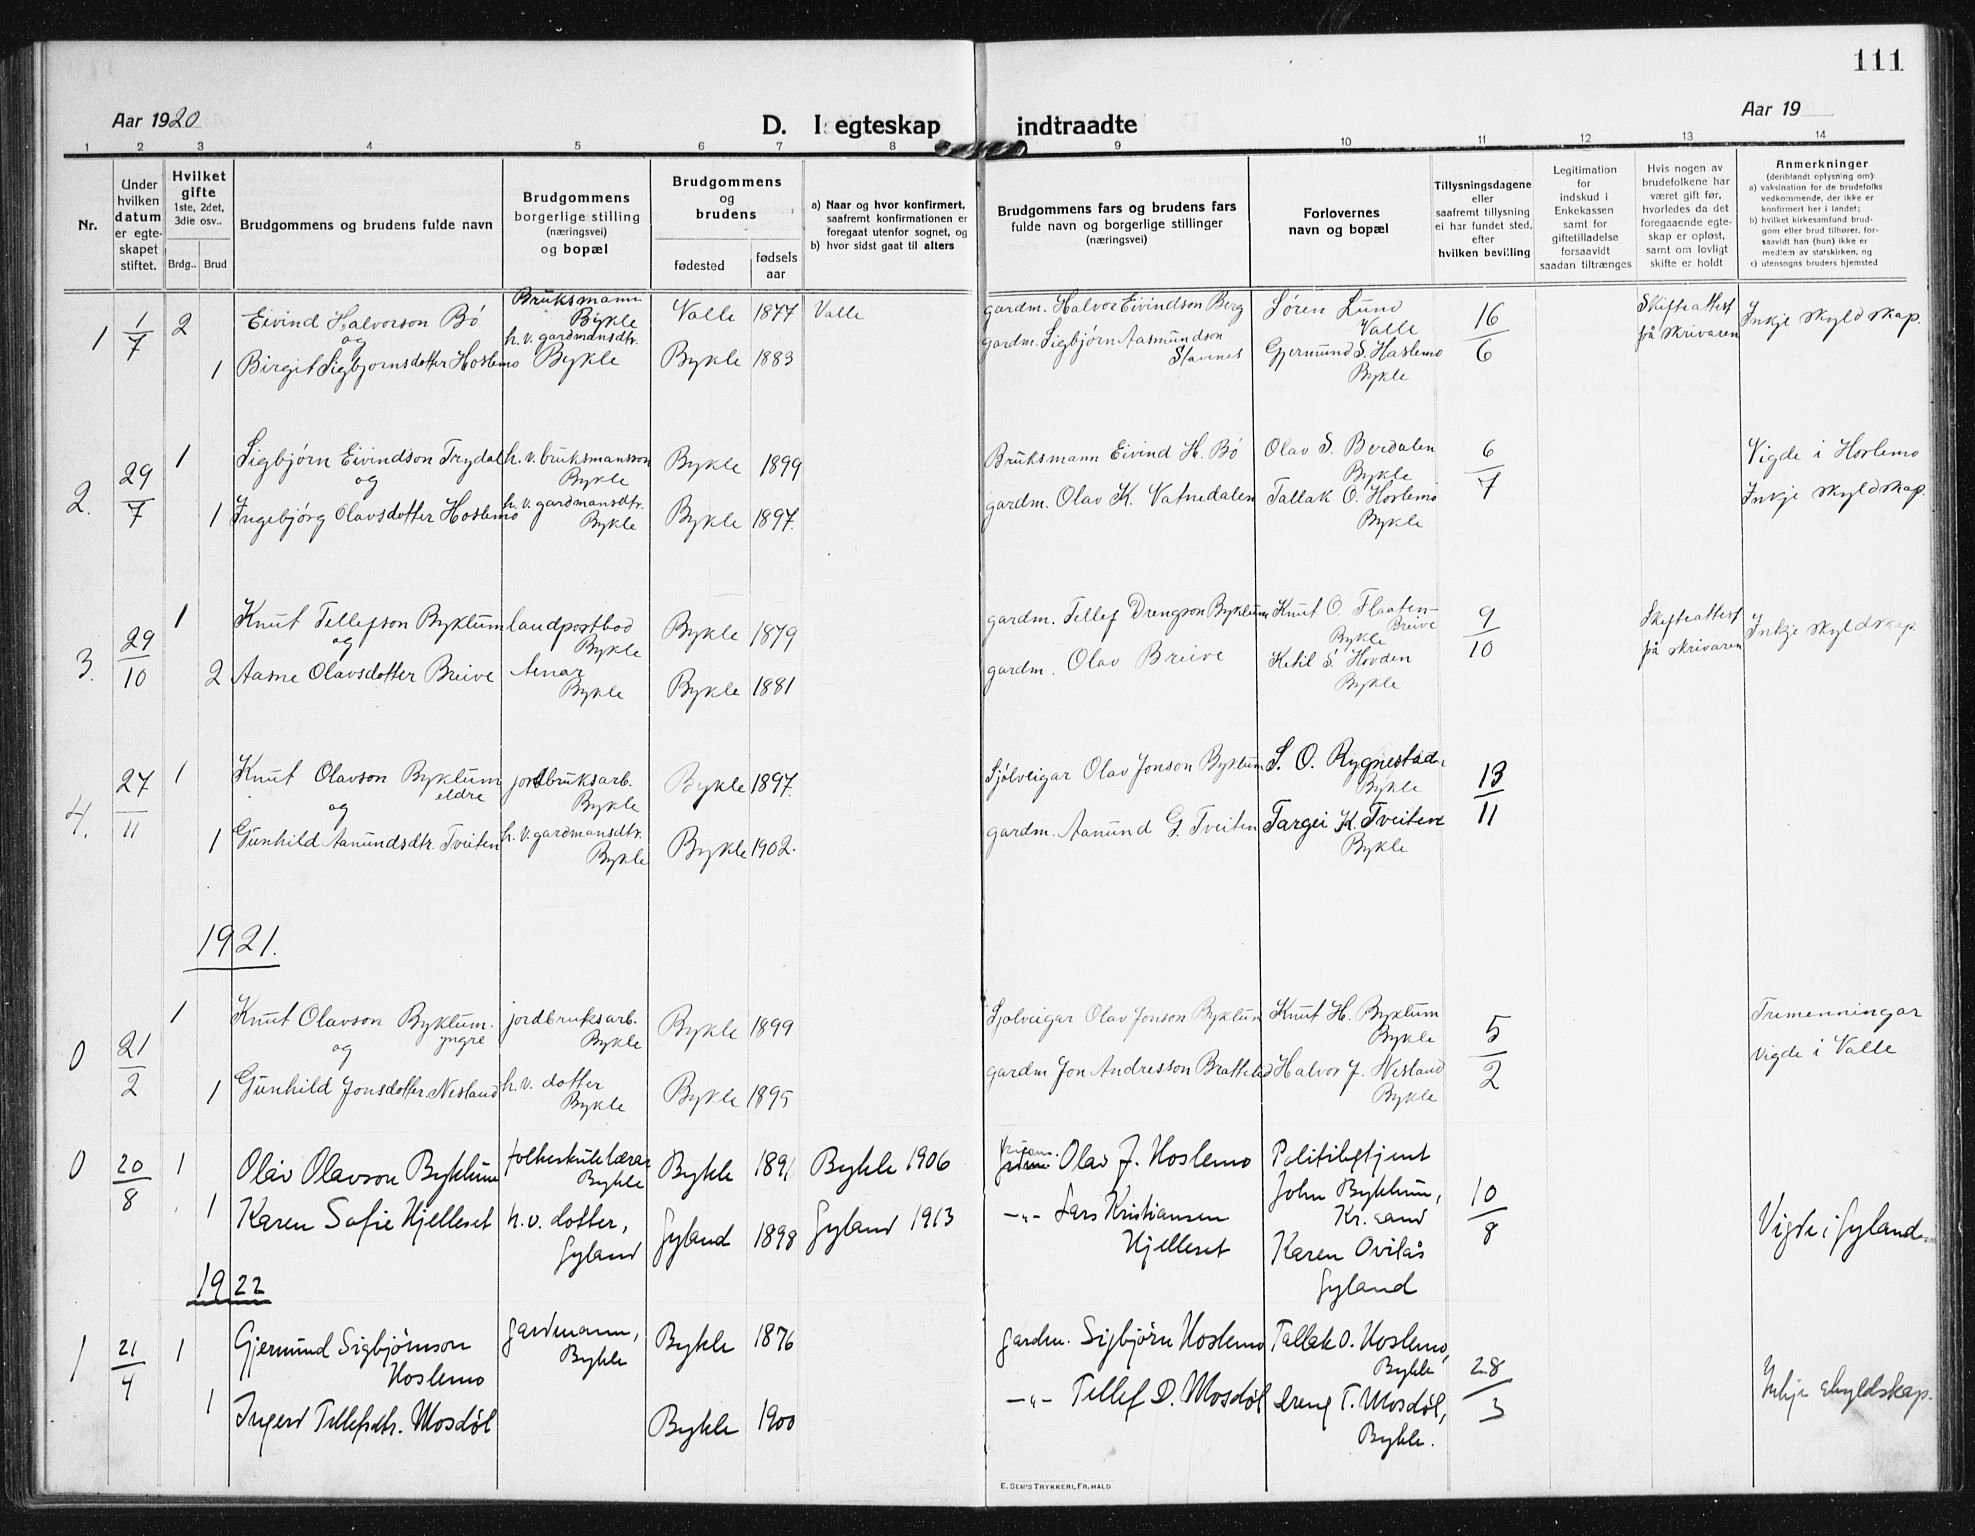 111
Aar 1920
D. I egteskap indtraadte
Aar 19
1 2 3 4 5 6 7 8 9 10 11 12 13 14
Nr.
Under hvilken datum er egteskapet stiftet.
Hvilket gifte
1ste, 2det, 3die osv..
Brdg.. Brud
Brudgommens og brudens fulde navn
Brudgommens borgerlige stilling (næringsvei) og bopæl
Brudgommens og brudens
fødested
fødsels aar
a) Naar og hvor konfirmert, saafremt konfirmationen er foregaat utenfor sognet, og
b) hvor sidst gaat til alters
Brudgommens fars og brudens fars fulde navn og borgerlige stillinger (næringsvei)
Forlovernes navn og bopæl
Tillysningsdagene eller saafremt tillysning ei har fundet sted, efter hvilken bevilling
Legitimation for indskud i Enkekassen samt for giftetilladelse forsaavidt saadan tiltrænges
Hvis nogen av brudefolkene har været gift før, hvorledes da det foregaaende egteskap er opløst, samt om lovligt skifte er holdt
Anmerkninger
(deriblandt oplysning om):
a) vaksination for de brudefolks vedkommende, der ikke er konfirmert her i landet;
b) hvilket kirkesamfund brudgom eller brud tilhører, forsaavidt han (hun) ikke er medlem av statskirken, og
c) utensogns bruders hjemsted
1 1/7 2 Eivind Halvorson Bó Bruksmann Bykle Valle 1877 Valle gardm. Halvor Eivindson Berg Søren Lund Valle 16/6 Skifteattest på skrivaren Inkje skyldskap.
og
1 Birgit Sigbjørnsdotter Hoslemo h. v. gardmansdtr. Bykle Bykle 1883 gardm. Sigbjørn Aasmundson Gjermund S. Haslemo Bykle
2. 29/7 1 Sigbjørn Eivindson Trydal h. v. bruksmansson Bykle Bykle 1899 Bruksmann Eivind H. Bó Olav S. Berdalen Bykle 6/7 Vigde i Hoslemo
og
1 Ingebjørg Olavsdotter Hoslemo h. v. gardmansdtr. Bykle Bykle 1897. gardm. Olav K. Vatnedalen Tallak O. Hoslemo Bykle Inkje skyldskap.
3. 29/10 1 Knut Tellefson Byklum landpostbod Bykle Bykle 1879 gardm. Tellef Drengson Byklum Knut O. Flaaten-Breive Bykle 9/10 Skifteattest på skrivaren Inkje skyldskap.
og
2 Aasne Olavsdotter Breive Bykle Bykle 1881 gardm. Olav Breive Ketil S. Hovden Bykle
4. 27/11 1 Knut Olavson Byklum eldre jordbruksarb. Bykle Bykle 1897. Sjølveigar Olav Jonson Byklum S. O. Rygnestad Bykle 13/11
og
1 Gunhild Aanundsdtr. Tveiten h. v. gardmansdtr. Bykle Bykle 1902. gardm. Aanund G. Tveiten Targei K. Tveiten Bykle
1921.
0 21/2 1 Knut Olavson Byklum. yngre jordbruksarb. Bykle Bykle 1899 Sjølveigar Olav Jonson Byklum Knut H. Byklum Bykle 5/2 Tremenningar
og
1 Gunhild Jonsdotter Nesland h. v. dotter Bykle Bykle 1895 gardm Jon Andresson Brattelid Halvor J. Nesland Bykle vigde i Valle
0 20/8 1 Olav Olavson Byklum folkeskulelærar Bykle Bykle 1891 Bykle 1906 Olav J. Hoslemo Politibetjent John Byklum, Kr. sand 10/8
1 Karen Sofie Hjelleset h. v. dotter, Gyland Gyland 1898 Gyland 1913 -"- Lars Kristiansen Hjelleset Karen Ovilås Gyland Vigde i Gyland
1922
1 21/4 1 Gjermund Sigbjørnson Hoslemo gardmann, Bykle Bykle 1876 gardm. Sigbjørn Hoslemo Tallak O. Hoslemo, Bykle 28/3
1 Ingerd Tellefsdtr. Mosdøl Bykle 1900 -"- Tellef D. Mosdøl Dreng T. Mosdøl, Bykle. Inkje skyldskap.
E. SEM'S TRYKKERI, FR.HALD